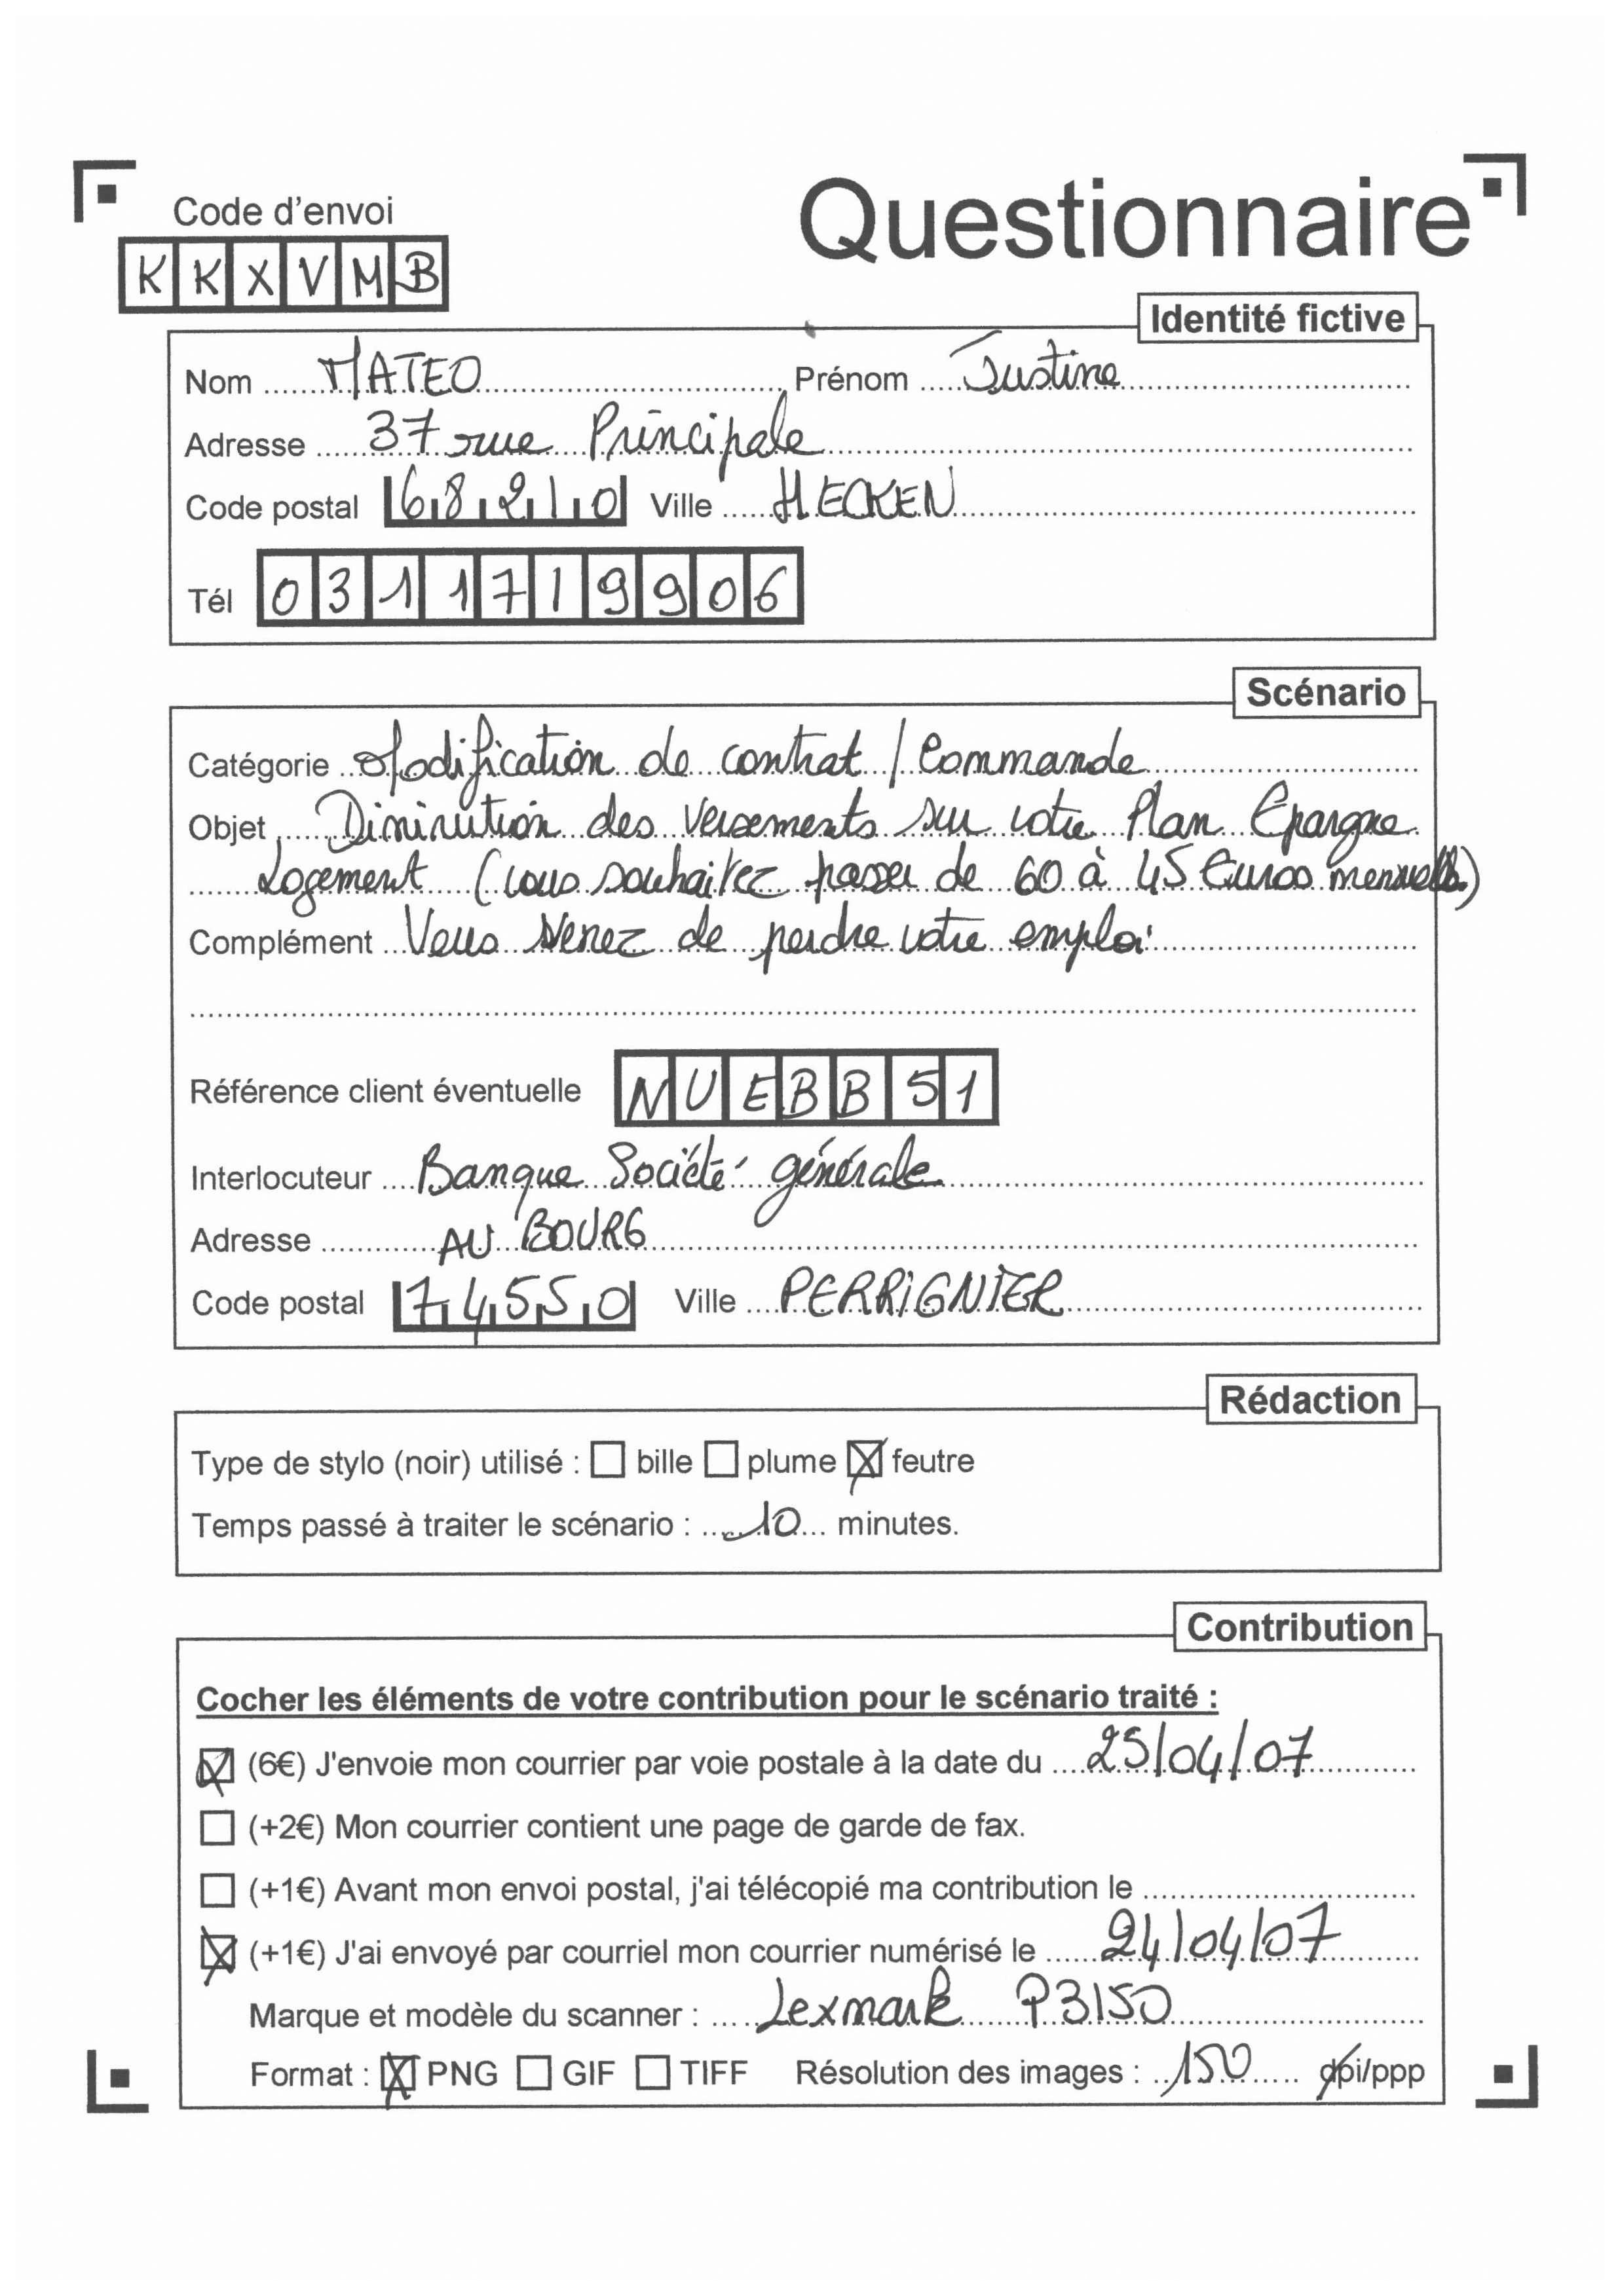 Code d'envoi
Questionnaire
KKXVMB
Identité fictive
Nom MATEO Prénom Justine
Adresse 37 rue Principale
Code postal 68210 Ville HECKEN
Tél 0311719906
Scénario
Catégorie Modification de contrat / Commande
Objet Diminution des versements sur votre Plan Epargne
Logement (vous souhaitez passer de 60 à 45 Euros mensuels.)
Complément Vous venez de perdre votre emploi
Référence client éventuelle NUEBB51
Interlocuteur Banque Société générale
Adresse AU BOURG
Code postal 74550 Ville PERRIGNIER
Rédaction
Type de stylo (noir) utilisé : bille plume feutre
Temps passé à traiter le scénario : 10 minutes.
Contribution
Cocher les éléments de votre contribution pour le scénario traité :
(6€) J'envoie mon courrier par voie postale à la date du 25/04/07
(+2€) Mon courrier contient une page de garde de fax.
(+1€) Avant mon envoi postal, j'ai télécopié ma contribution le
(+1€) J'ai envoyé par courriel mon courrier numérisé le 24/04/07
Marque et modèle du scanner : Lexmark P3150
Format : PNG GIF TIFF Résolution des images : 150 dpi/ppp